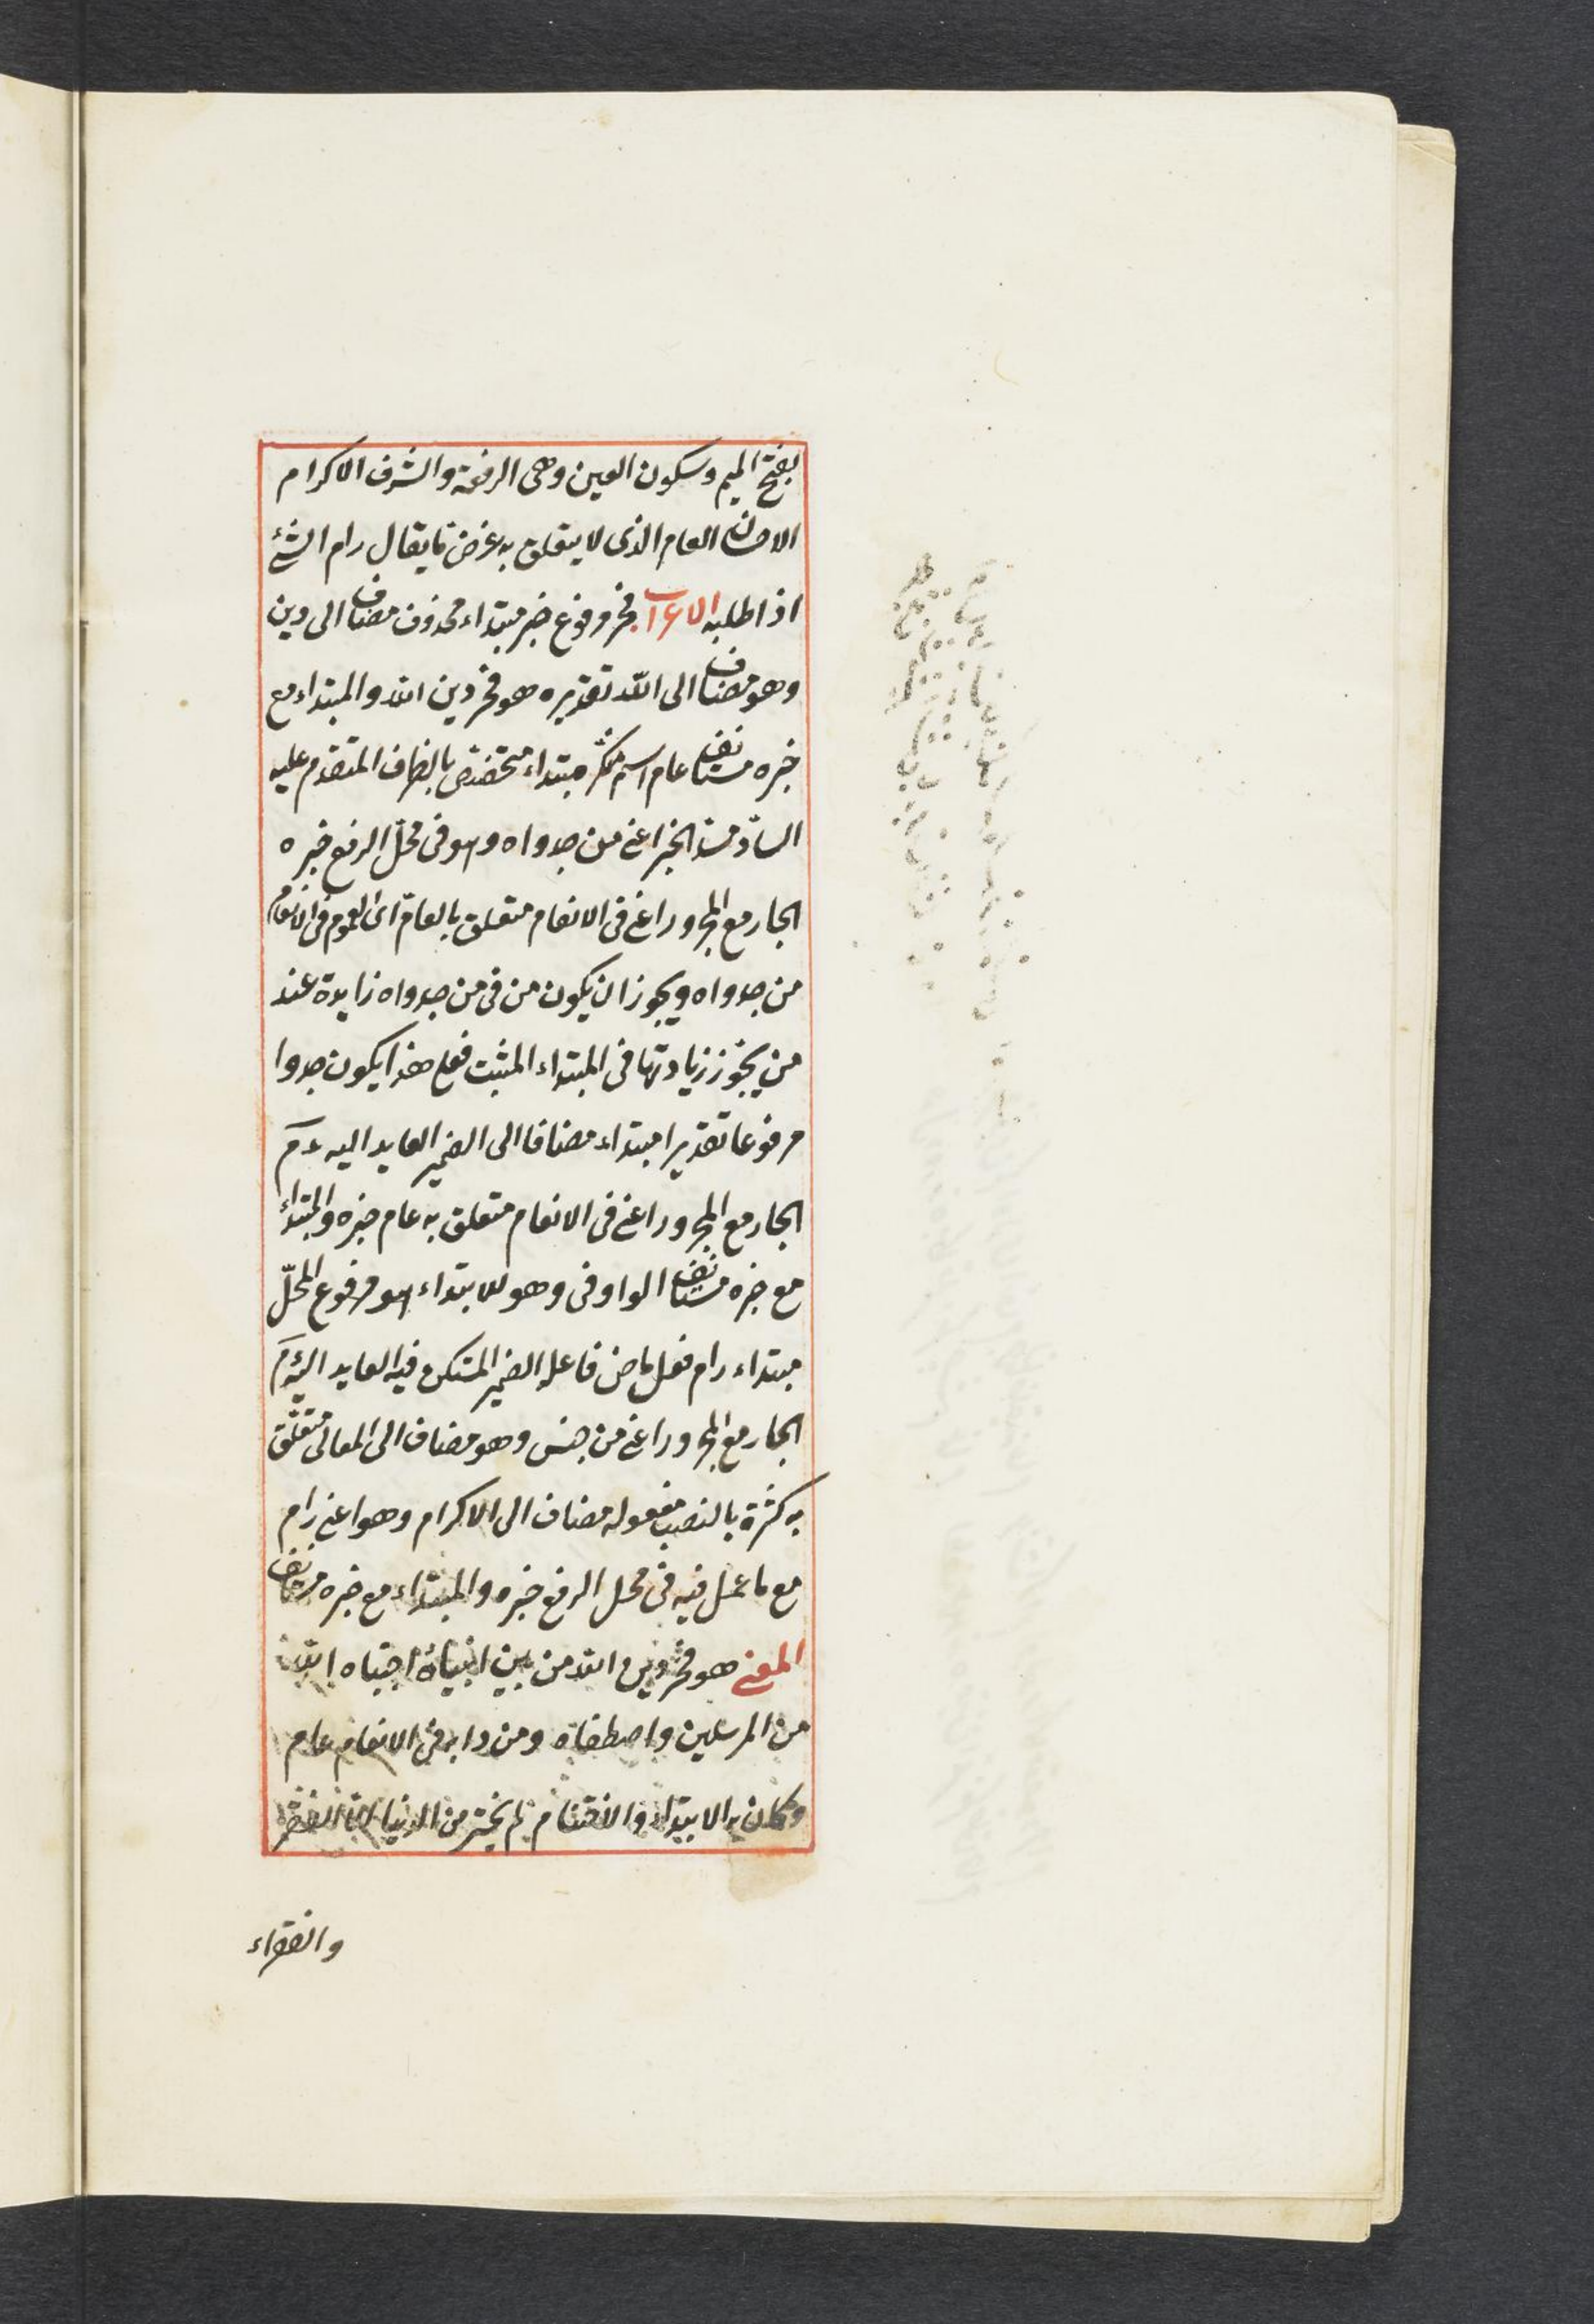 بفتح الميم وسكون العين وهى الرفعة والشرف الاكرام
الاحسان العام الذى لا يتعلق به غرض ما يقال رام الشئ
اذا طلبه الاعراب فخر مرفوع خبر مبتداء محذوف مضاف الى دين
وهو مضاف الى الله تقديره هو فخر دين الله والمبتداء مع
خبره مستانف عام اسم منكر مبتداء متخصص بالظرف المتقدم عليه
السادّ مسدّ الخبر اعنى من جدواه وهو فى محلّ الرفع خبره
الجار مع المجرور اعنى فى الانعام متعلق بالعامّ اى العموم فى الانعام
من جدواه ويجوز ان يكون من فى من جدواه زايدة عند
من يجوّز زيادتها فى المبتداء المثبت فعلى هذا يكون جدوا
مرفوعا تقديرا مبتداء مضافا الى الضمير العايد اليه عم
الجار مع المجرور اعنى فى الانعام متعلق به عام خبره والمبتداء
مع خبره مستانف الواو فى وهو للابتداء هو مرفوع المحلّ
مبتداء رام فعل ماض فاعله الضمير المستكن فيه العايد اليه عم
الجار مع المجرور اعنى من جنس وهو مضاف الى المعالى متعلّق
به كثرة بالنصب مفعوله مضاف الى الاكرام وهو اعنى رام
مع ما عمل فيه فى محل الرفع خبره والمبتداء مع خبره مستانف
المعنى هو فخر دين الله من بين انبيائه اجتباه الله
من المرسلين واصطفاه ومن دابه فى الانعام عام
وكان به الابتداء والاختتام لم يختر من الدنيا الا الفقر
والفقراء